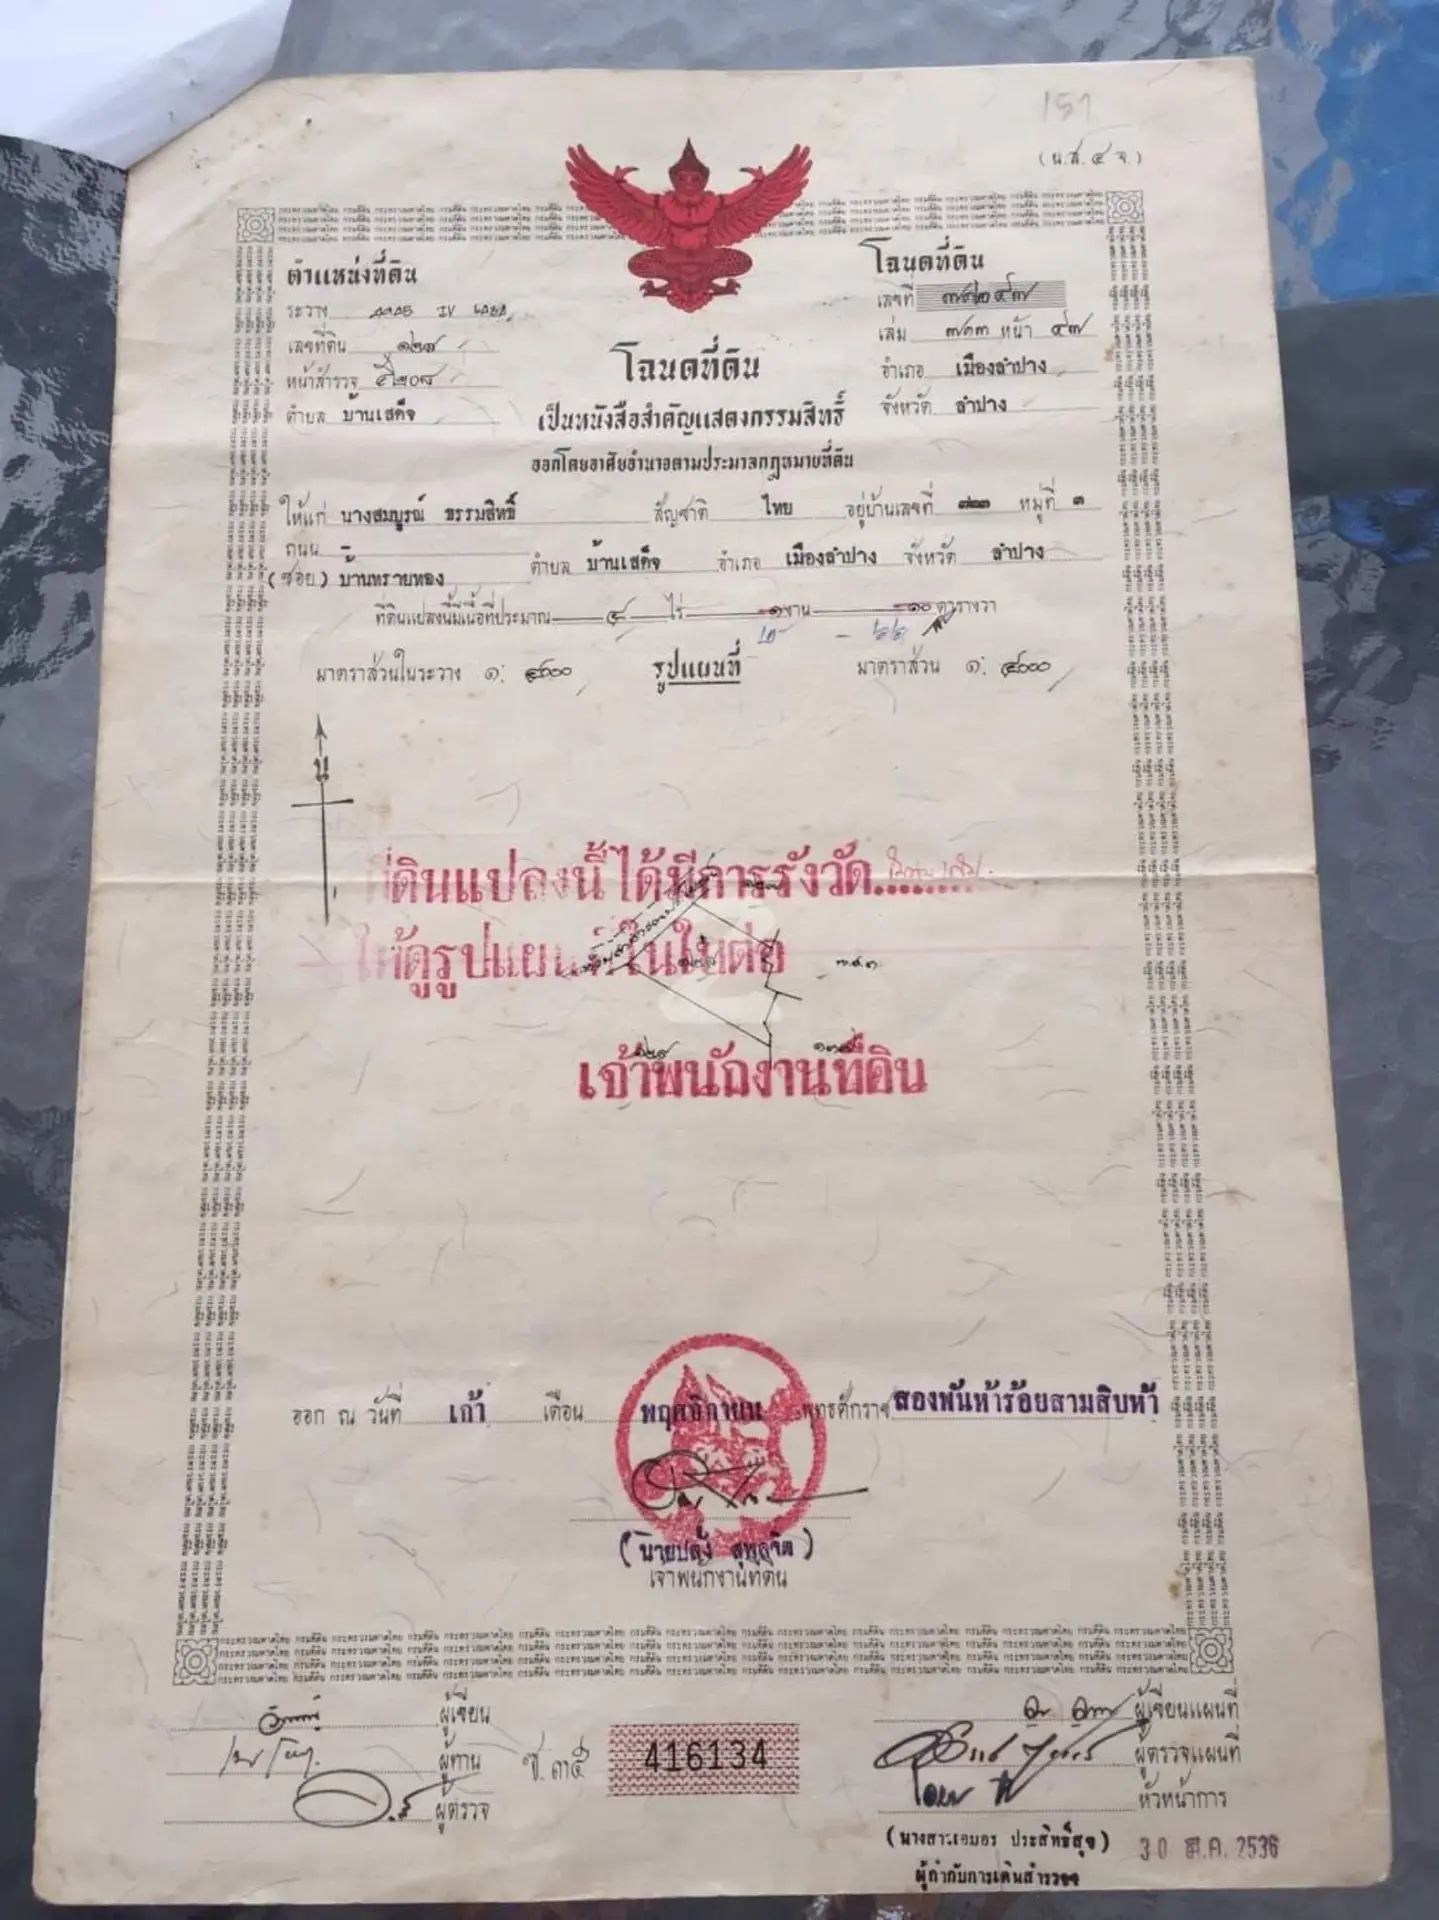 151
(น.ส.๔ จ.)
ตำแหน่งที่ดิน
ระวาง IV
เลขที่ดิน ๑๒๗
หน้าสำรวจ
ตำบล บ้านเสด็จ
โฉนดที่ดิน
เลขที่
เล่ม ๓๑๓ หน้า ๔๗
อำเภอ เมืองลำปาง
จังหวัด ลำปาง
โฉนดที่ดิน
เป็นหนังสือสำคัญแสดงกรรมสิทธิ์
ออกโดยอาศัยอำนาจตามประมวลกฎหมายที่ดิน
ให้แก่ นางสมบูรณ์ ธรรมสิทธิ์ สัญชาติ ไทย อยู่บ้านเลขที่ หมู่ที่ ๓
ถนน
(ซอย) บ้านทรายทอง ตำบล บ้านเสด็จ อำเภอ เมืองลำปาง จังหวัด ลำปาง
ที่ดินแปลงนี้มีเนื้อที่ประมาณ ๔ ไร่ ๑ งาน ๑๐ ตารางวา
๒ - ๖๖
มาตราส่วนในระวาง ๑: ๔๐๐๐ รูปแผนที่ มาตราส่วน ๑: ๔๐๐๐
น
ที่ดินแปลงนี้ได้มีการรังวัด
ให้ดูรูปแผนที่ในใบต่อ
น.ส.๓
เจ้าพนักงานที่ดิน
ออก ณ วันที่ เก้า เดือน พฤศจิกายน พุทธศักราช สองพันห้าร้อยสามสิบห้า
(นายปลั่ง สุพลจิต)
เจ้าพนักงานที่ดิน
ผู้เขียน
ผู้ทาน
ผู้ตรวจ
416134
ผู้เขียนแผนที่
ผู้ตรวจแผนที่
หัวหน้าการ
(นางสาวเอมอร ประสิทธิ์สุจ)
30 ส.ค. 2536
ผู้กำกับการเดินสำรวจ